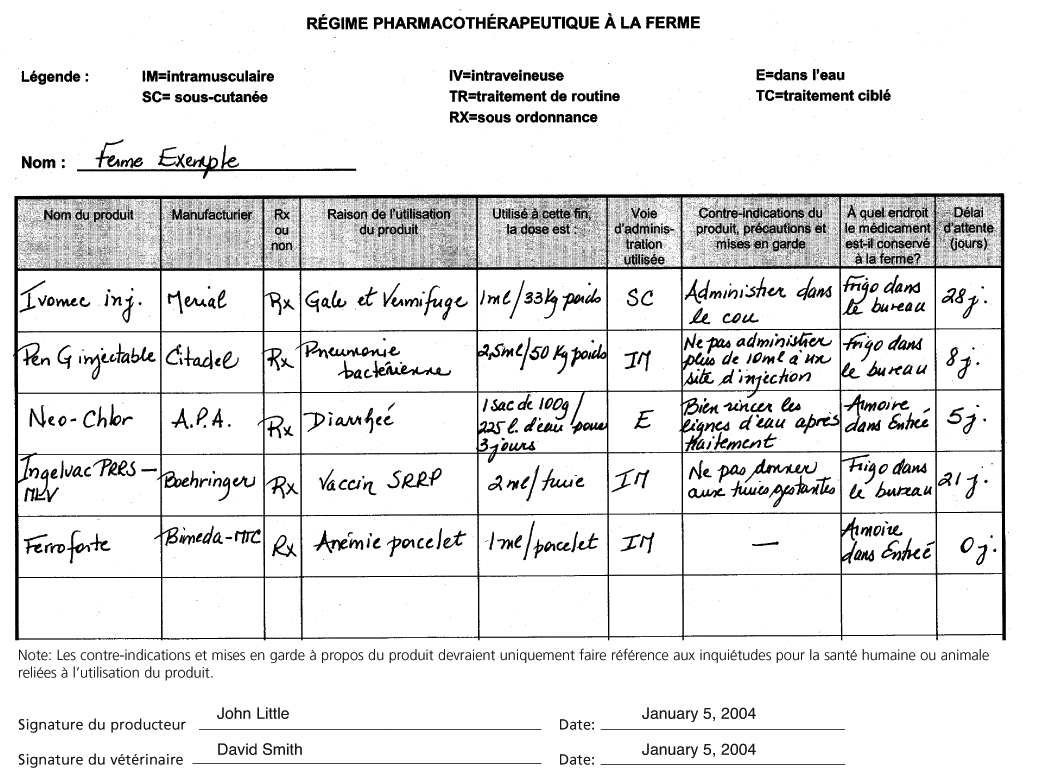 RÉGIME PHARMACOTHÉRAPEUTIQUE À LA FERME
Légende : IM=intramusculaire IV=intraveineuse E=dans l'eau
SC= sous-cutanée TR=traitement de routine TC=traitement ciblé
RX=sous ordonnance
Nom : Ferme Exemple
Nom du produit
Manufacturier
Rx
ou
non
Raison de l'utilisation
du produit
Utilisé à cette fin,
la dose est :
Voie
d'adminis-
tration
utilisée
Contre-indications du
produit, précautions et
mises en garde
À quel endroit
le médicament
est-il conservé
à la ferme?
Délai
d'attente
(jours)
Ivomec inj.
Merial
Rx
Gale et Vermifuge
1ml/33Kg poids
SC
Administrer dans
le cou
Frigo dans
le bureau
28 j.
Pen G injectable
Citadel
Rx
Pneumonie
bactérienne
2,5ml/50 Kg poids
IM
Ne pas administrer
plus de 10ml à un
site d'injection
Frigo dans
le bureau
8 j.
Neo-Chlor
A.P.A.
Rx
Diarrheé
1 sac de 100g/
225 l. d'eau pour
3 jours
E
Bien rincer les
lignes d'eau après
traitement
Armoire
dans Entreé
5 j.
Ingelvac PRRS-
MLV
Boehringer
Rx
Vaccin SRRP
2 ml/truie
IM
Ne pas donner
aux truies gestantes
Frigo dans
le bureau
21 j.
Ferroforte
Bimeda-MTC
Rx
Anémie porcelet
1 ml/porcelet
IM
—
Armoire
dans Entreé
0 j.
Note: Les contre-indications et mises en garde à propos du produit devraient uniquement faire référence aux inquiétudes pour la santé humaine ou animale
reliées à l'utilisation du produit.
Signature du producteur John Little Date: January 5, 2004
Signature du vétérinaire David Smith Date: January 5, 2004